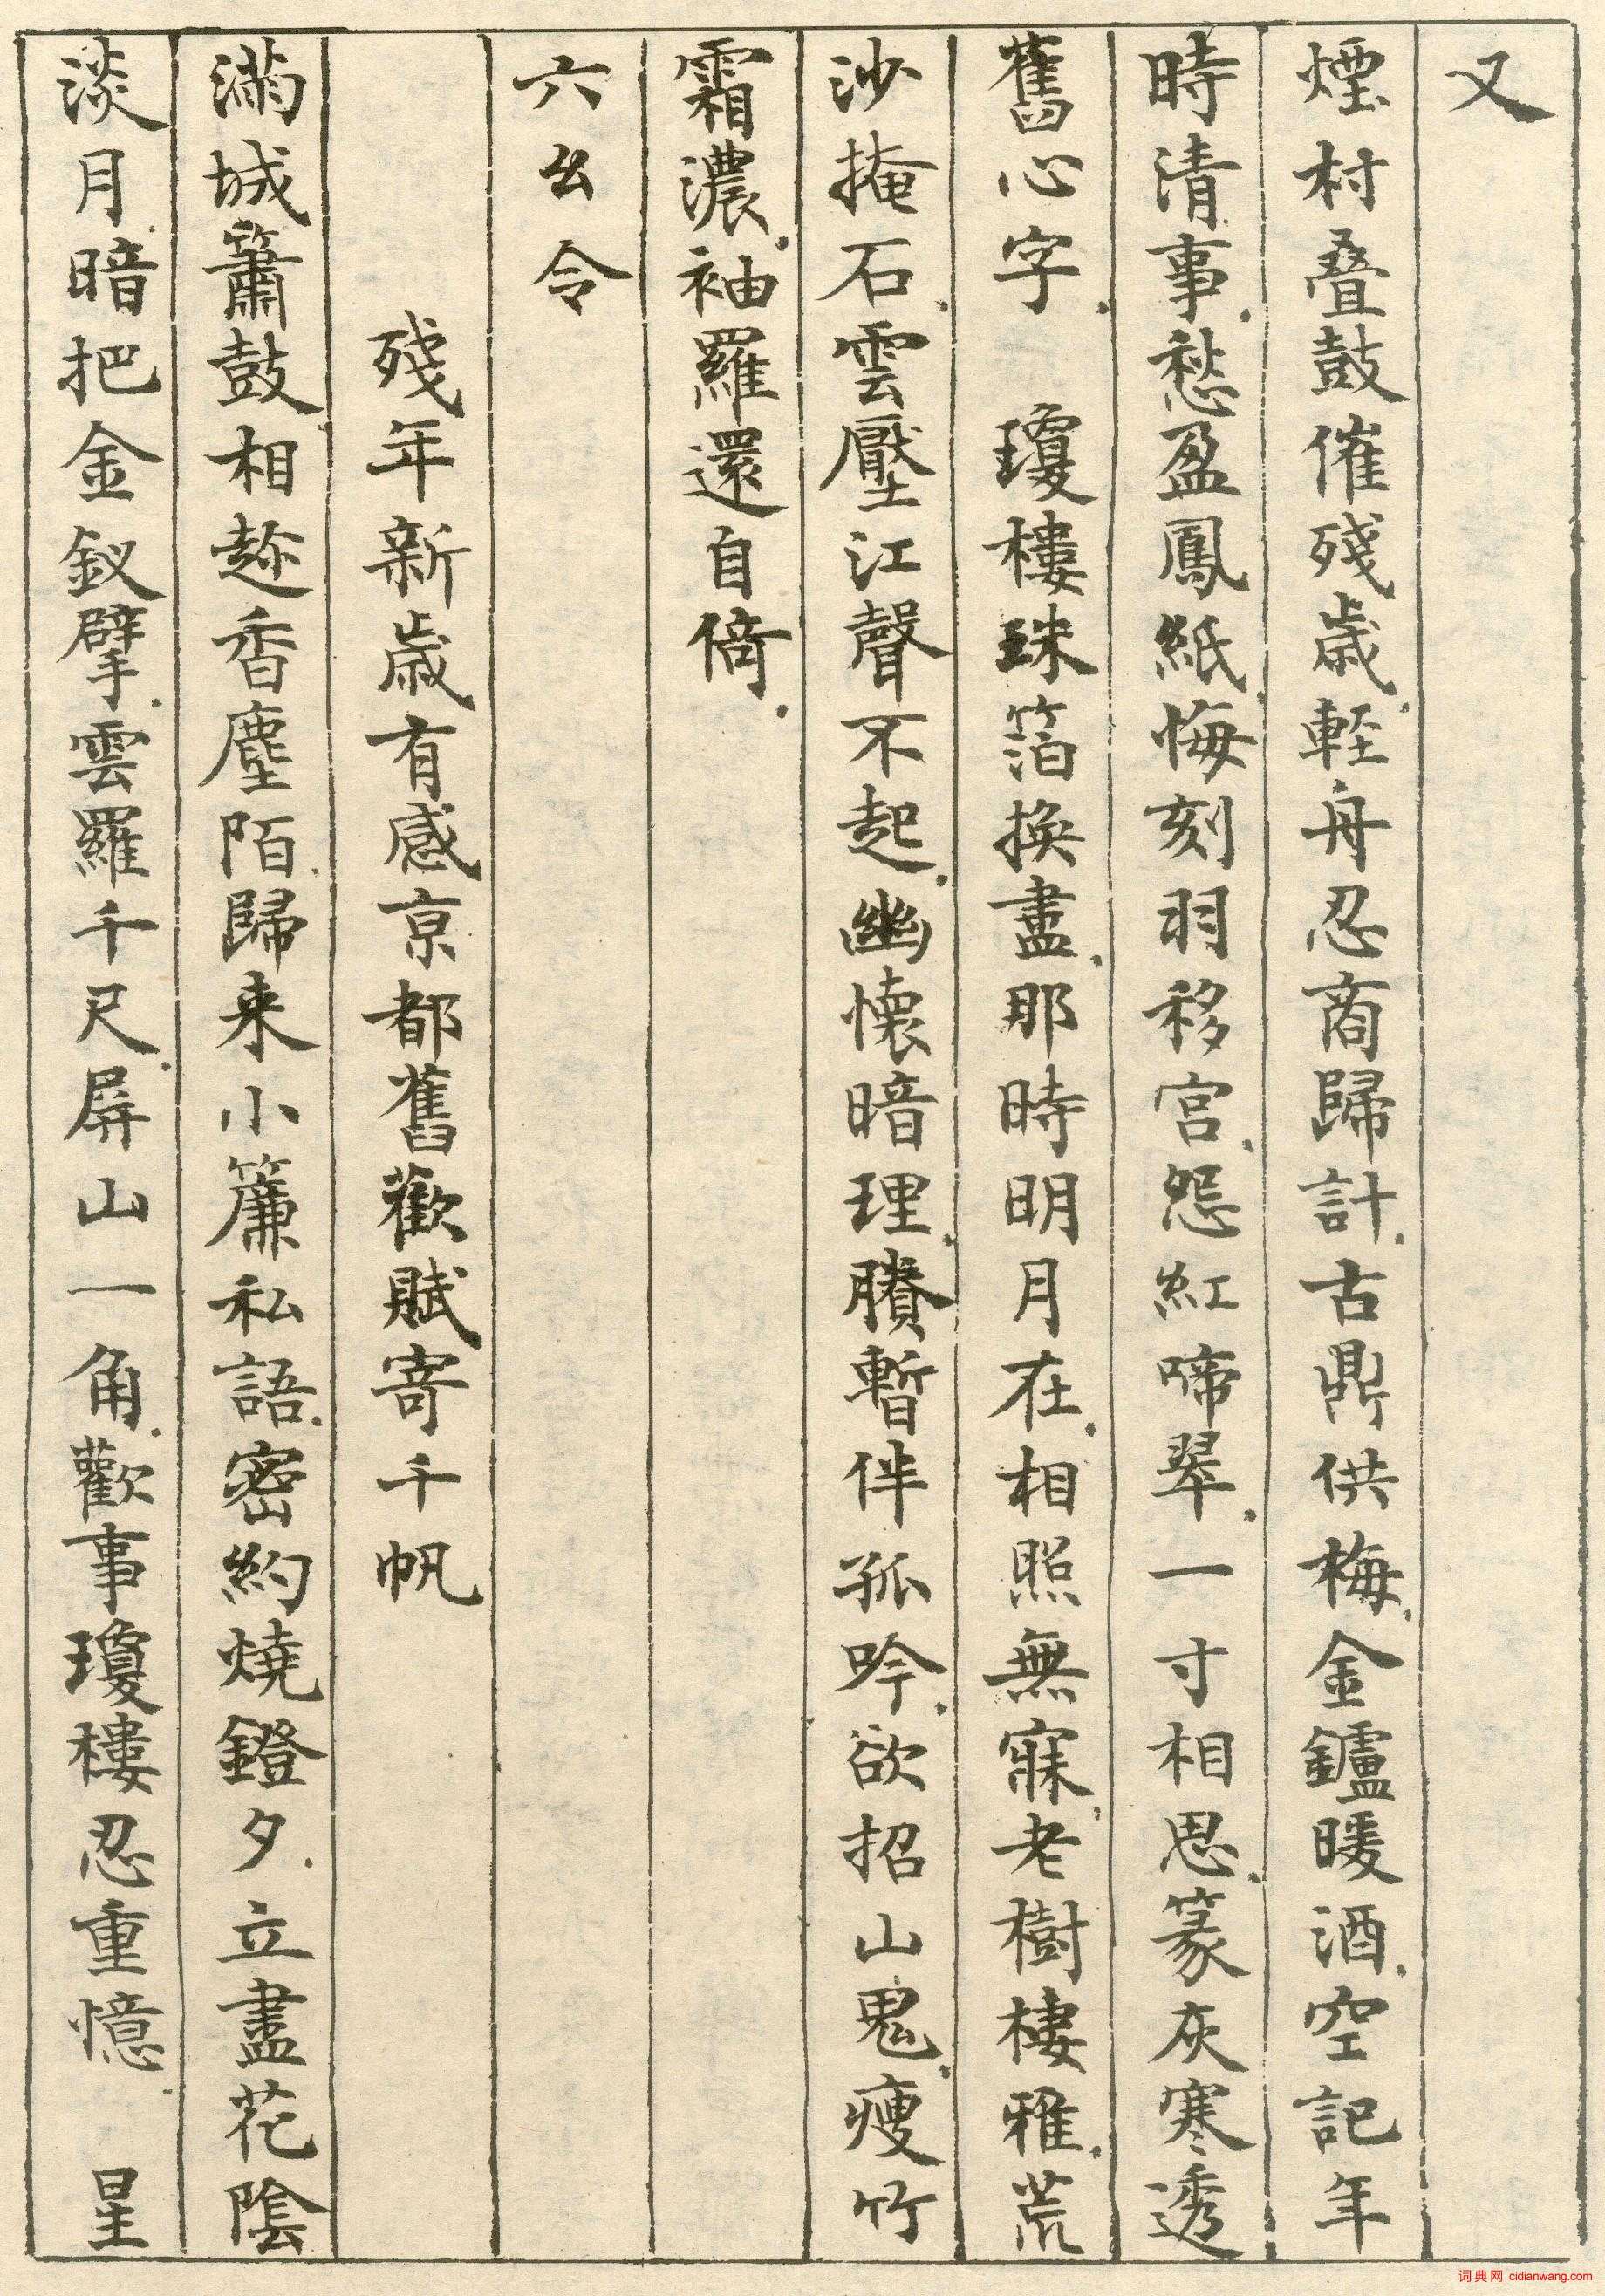 又
煙村叠鼓催殘歲輕舟忍商歸計古鼎供梅金鑪暖酒空記年
時清事愁盈鳳紙悔刻羽移宮怨紅啼翠一寸相思篆灰寒透
舊心字　瓊樓珠箔換盡那時明月在相照無寐老樹棲雅荒
沙掩石雲壓江聲不起幽懷暗理賸暫伴孤吟欲招山鬼瘦竹
霜濃袖羅還自倚
六幺令
殘年新歲有感京都舊歡賦寄千帆
滿城簫鼓相趂香塵陌歸來小簾私語密約燒鐙夕立盡花陰
淡月暗把金釵擘雲羅千尺屏山一角歡事瓊樓忍重憶　星
词典网 cidianwang.com